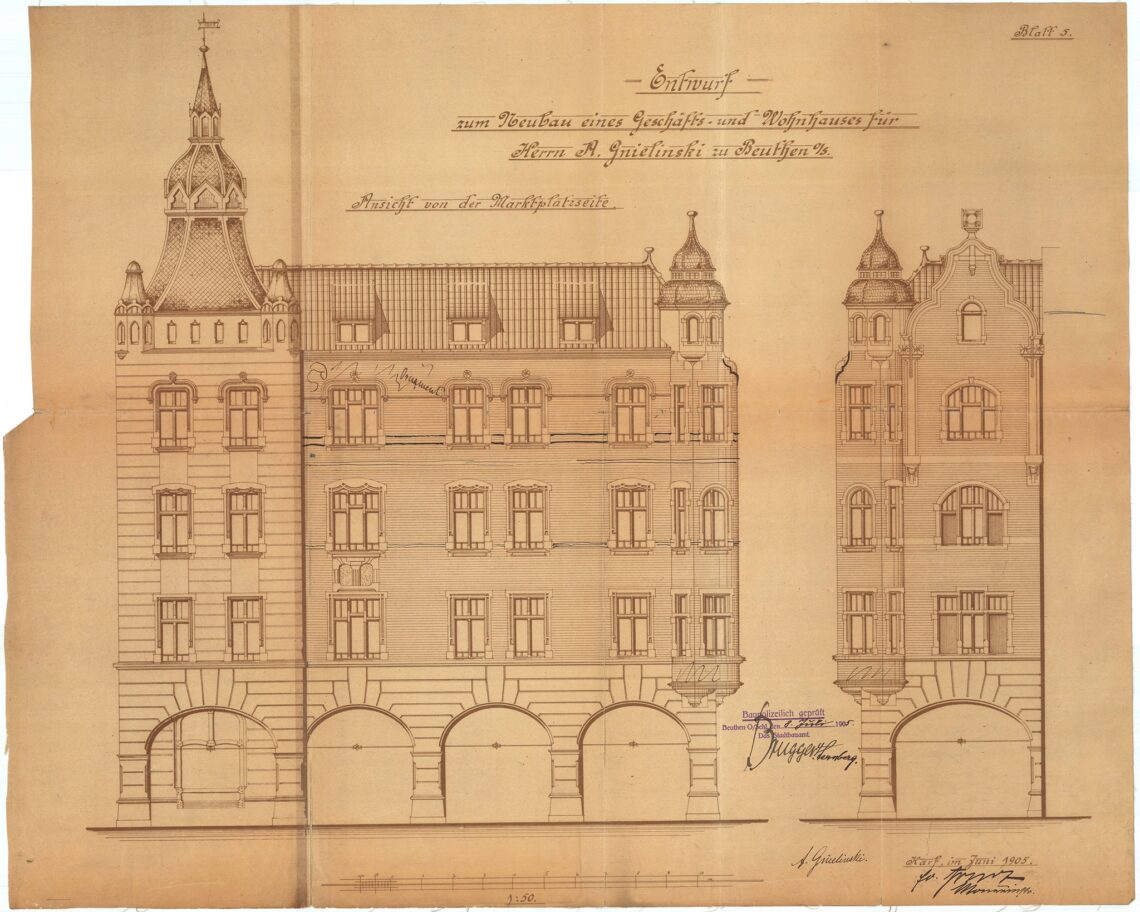 Blatt 5.
Entwurf
zum Neubau eines Geschäfts- und Wohnhauses für
Herrn A. Gnielinski zu Beuthen o/s.
Ansicht von der Marktplatzseite.
Baupolizeilich geprüft
Beuthen O/Schl., den 8. Juli 1905.
Das Stadtbauamt.
Brugger
A. Gnielinski.
Karf, im Juni 1905.
1:50.